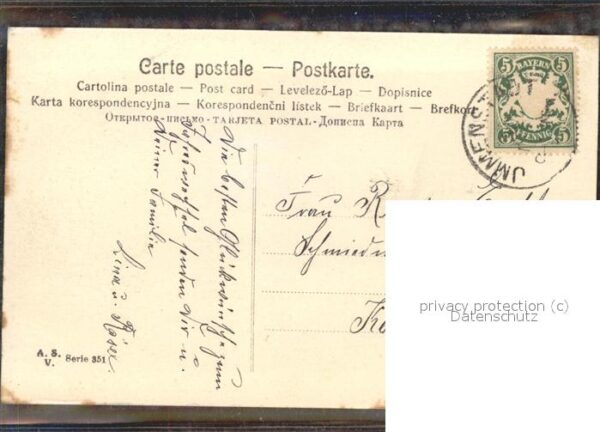 Carte postale — Postkarte.
Cartolina postale — Post card — Levelező-Lap — Dopisnice
Karta korespondencyjna — Korespondenční lístek — Briefkaart — Brefkort
Открытое-письмо-TARJETA POSTAL-Дописна Карта
5 BAYERN 5
5 PFENNIG 5
JMMENSTADT
Die besten Glückwünsche zum
Jahreswechsel senden Dir u.
Deiner Familie
Lina u.
Frau
Schmied
A. S.
V. Serie 351
privacy protection (c)
Datenschutz